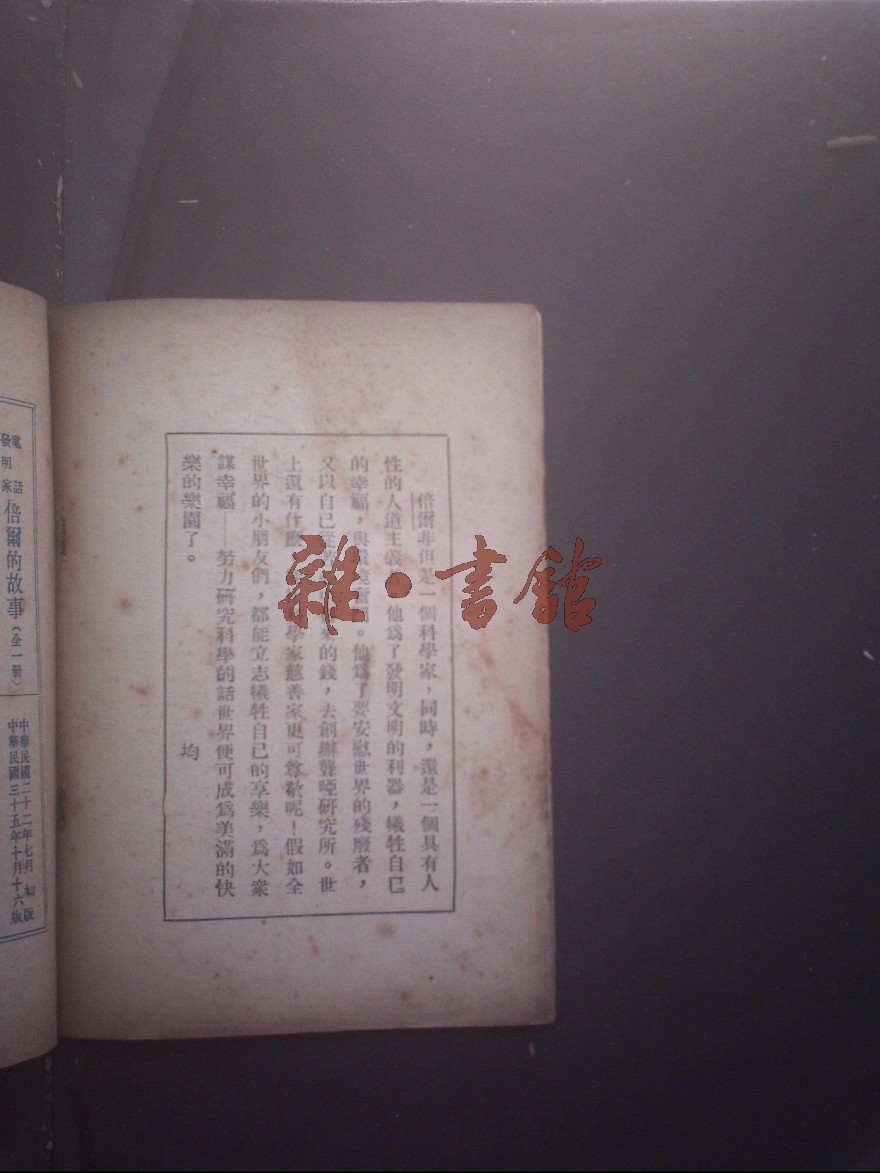 倍爾非但是一個科學家，同時，還是一個具有人
性的人道主義　他爲了發明文明的利器，犧牲自己
的幸福，與　奮　。他爲了要安慰世界的殘廢者，
又以自己　的錢，去創辦聾啞研究所。世
上還有什　學家慈善家更可尊敬呢！假如全
世界的小朋友們，都能立志犧牲自己的享樂，爲大衆
謀幸福——努力研究科學的話世界便可成爲美滿的快
樂的樂園了。
均
電話
發明家
倍爾的故事（全一册）
中華民國二十二年七月初版
中華民國三十五年十月十六版
雜·書館